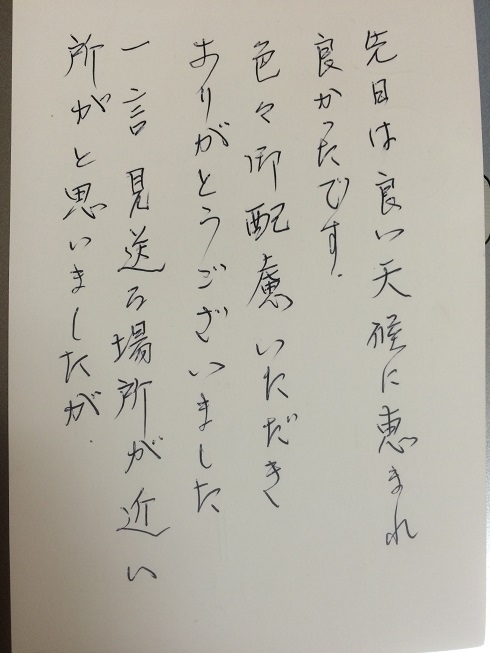 先日は良い天候に恵まれ
良かったです.
色々御配慮いただき
ありがとうございました
一言見送る場所が近い
所がと思いましたが.